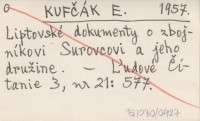 O KUFČÁK E. 1957.
Liptovské dokumenty o zboj-
níkovi Surovcovi a jeho
družine. — Ľudové čí-
tanie 3, nr 21: 577.